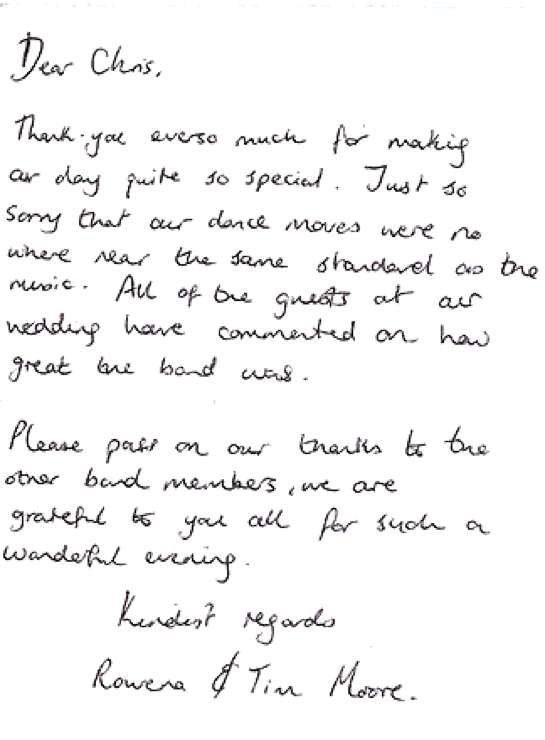 Dear Chris,
Thank-you everso much for making
our day quite so special. Just so
sorry that our dance moves were no
where near the same standard as the
music. All of the guests at our
wedding have commented on how
great the band was.
Please pass on our thanks to the
other band members, we are
grateful to you all for such a
wonderful evening.
Kindest regards
Rowena & Tim Moore.